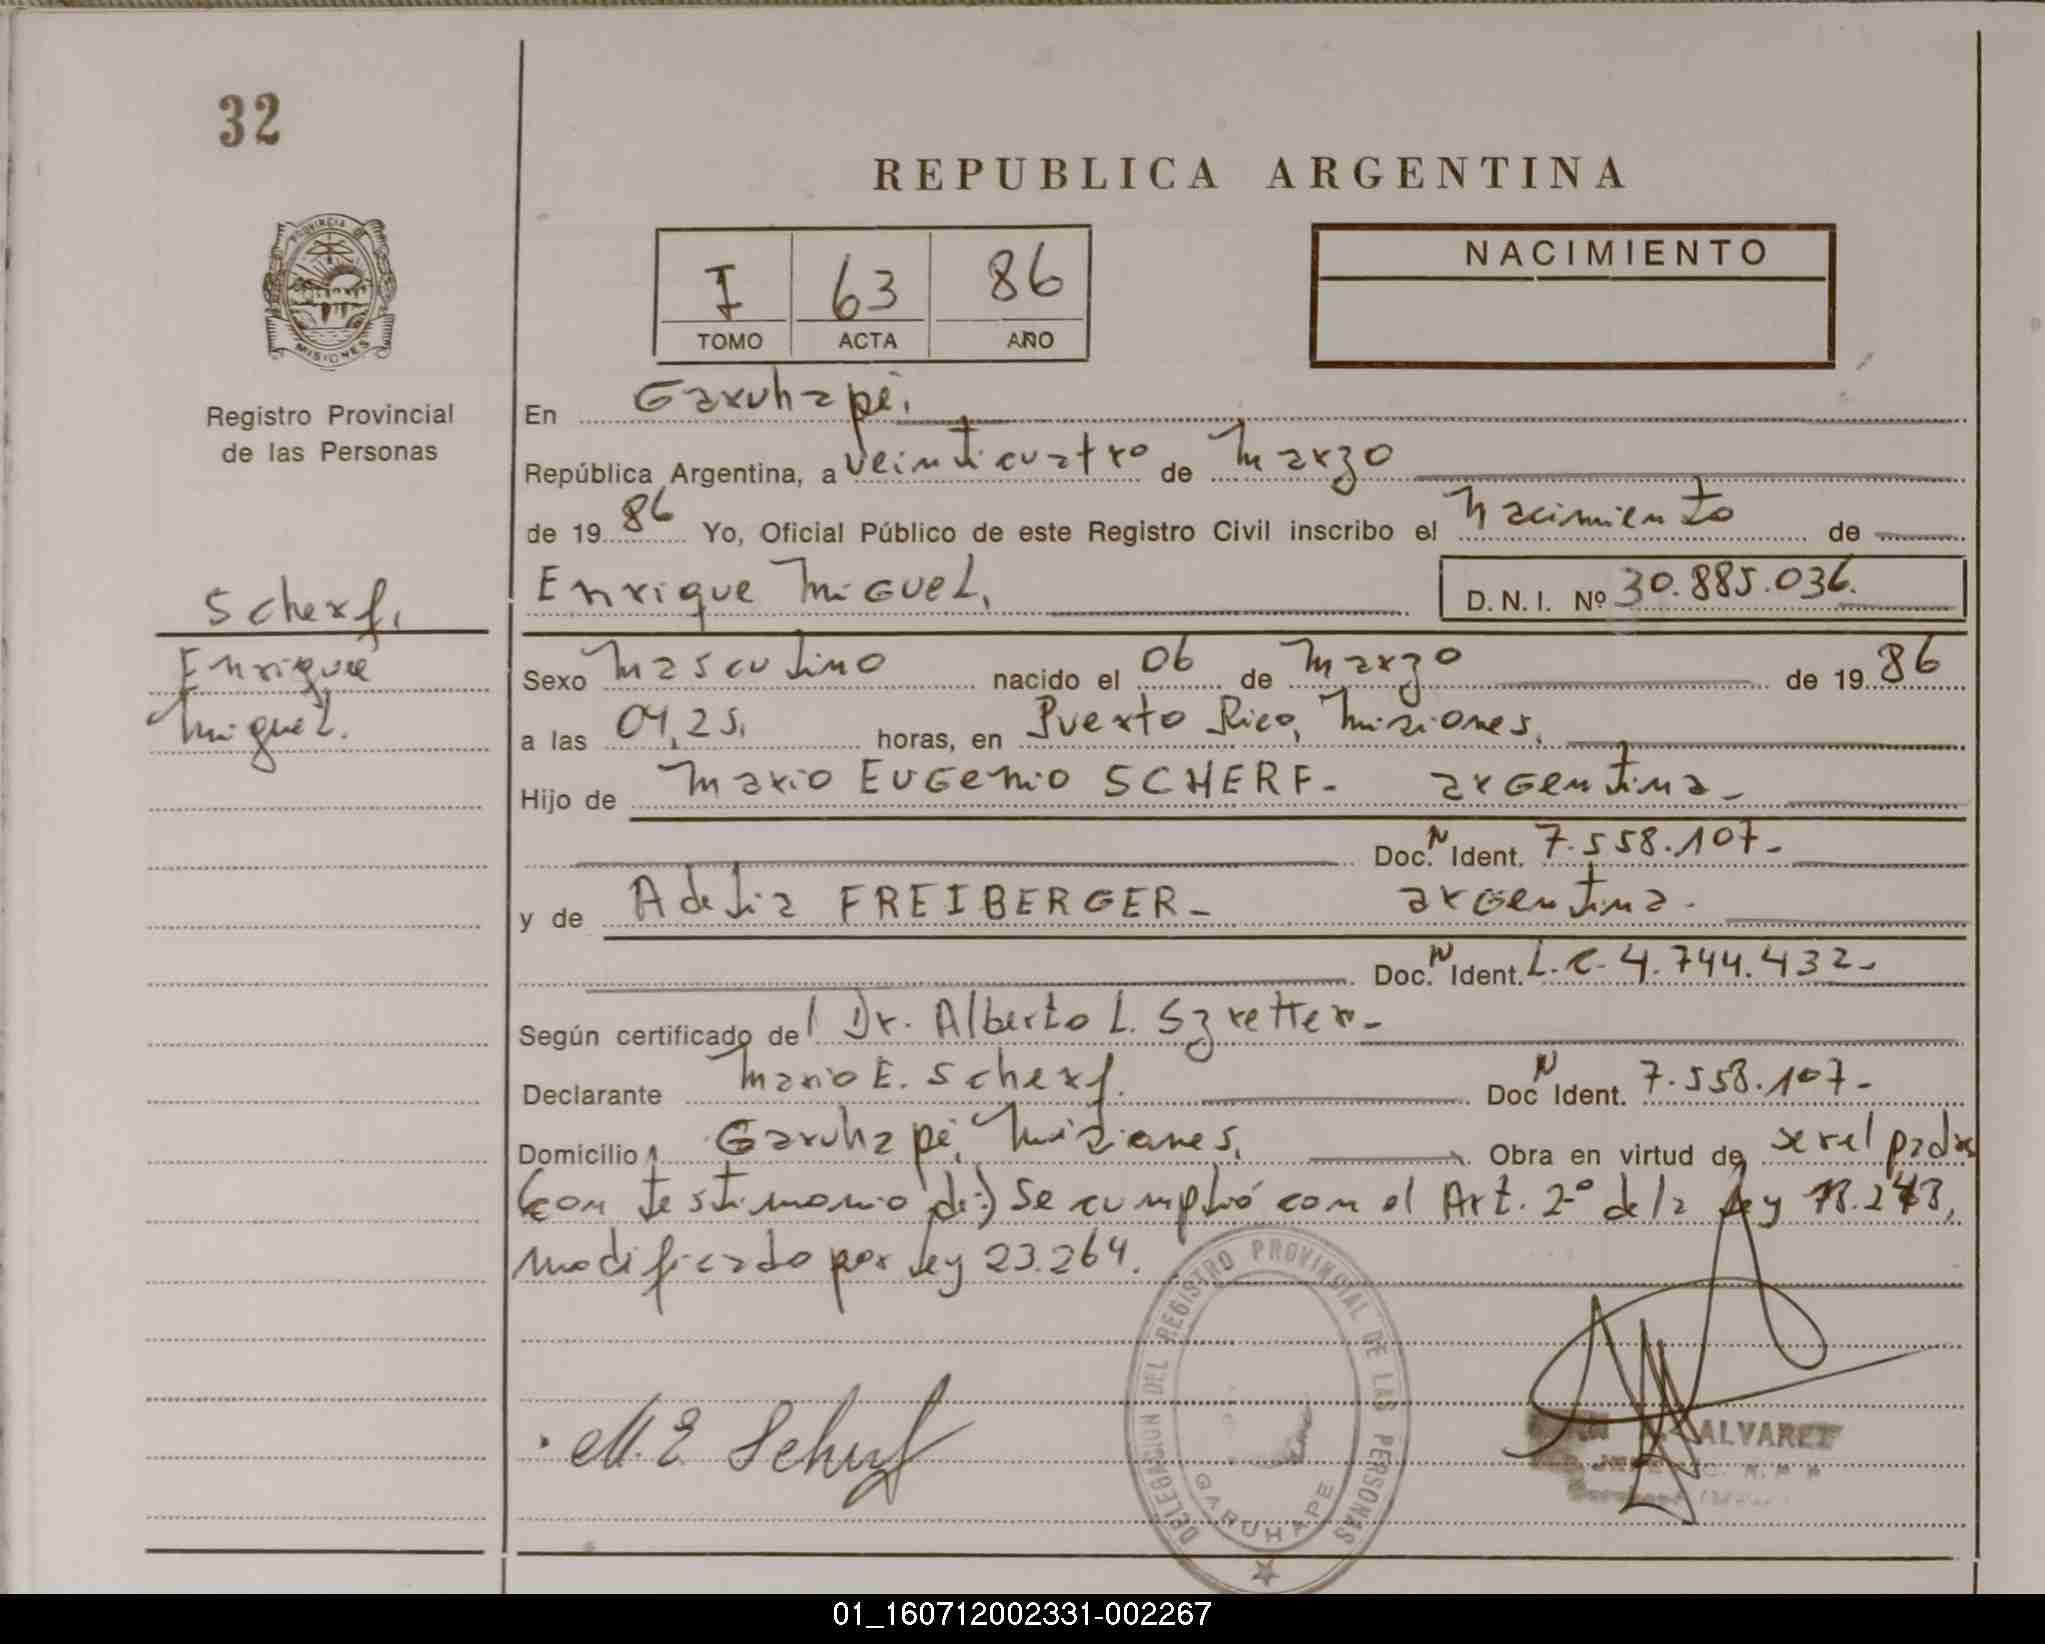 32
REPUBLICA ARGENTINA
PROVINCIA DE
MISIONES
Registro Provincial
de las Personas
I 63 86
TOMO ACTA AÑO
NACIMIENTO
En Garuhapé,
República Argentina, a veinticuatro de Marzo
de 19 86 Yo, Oficial Público de este Registro Civil inscribo el Nacimiento de
Enrique Miguel, D.N.I. Nº 30.885.036.
Scherf,
Enrique
Miguel.
Sexo Masculino nacido el 06 de Marzo de 19 86
a las 04,25, horas, en Puerto Rico, Misiones,
Hijo de Mario Eugenio SCHERF- argentina-
Doc. N Ident. 7.558.107-
y de Adelia FREIBERGER- argentina.
Doc. N Ident. L.C. 4.744.432-
Según certificado del Dr. Alberto L. Szretter-
Declarante Mario E. Scherf. Doc N Ident. 7.558.107-
Domicilio Garuhapé, Misiones, Obra en virtud de ser el padre
(con testimonio de:) Se cumplió con el Art. 2º de la Ley 18.248,
modificado por Ley 23.264.
M. E. Scherf
DELEGACION DEL REGISTRO PROVINCIAL DE LAS PERSONAS
GARUHAPE
ALVAREZ
01_160712002331-002267